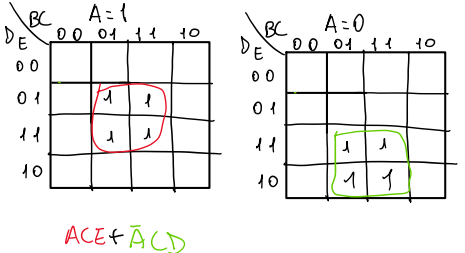 BC A=1
DE 00 01 11 10
00
01 1 1
11 1 1
10
BC A=0
DE 00 01 11 10
00
01
11 1 1
10 1 1
ACE + ĀCD